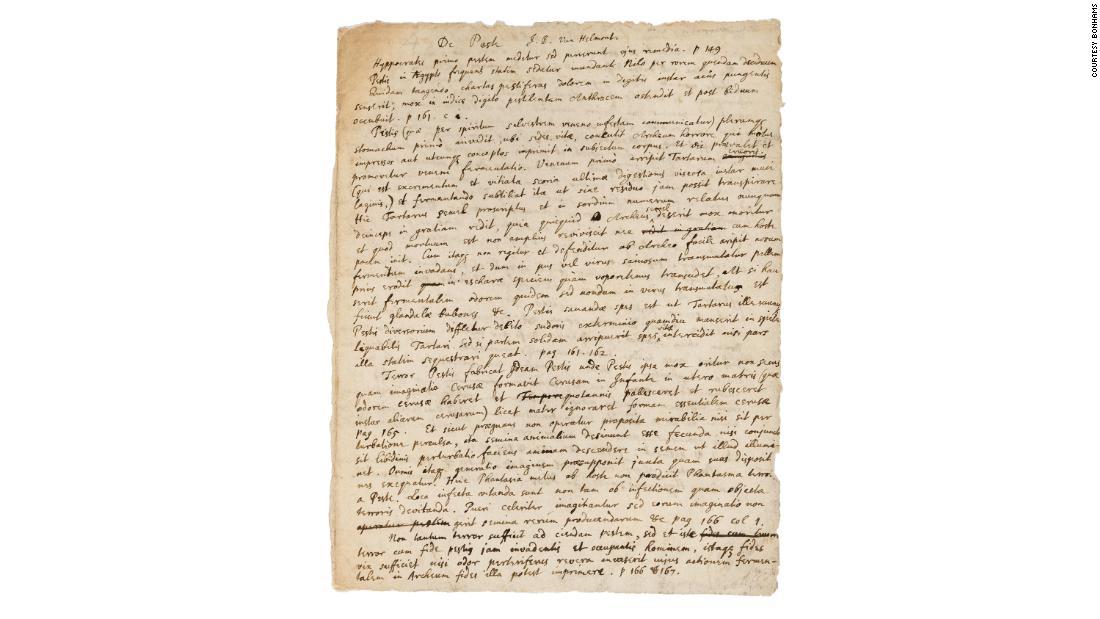 De Peste J. B. Van Helmont.
Hyppocrates primo pestem medetur sed perierunt ejus remedia. p 149
Pestis in Ægypto frequens statim sedatur inundante Nilo per rorem quendam deciduum
Quidam tangendo chartas pestiferas dolorem in digitis instar acus pungentis
senserit; mox in indice digito pestilentem Anthracem ostendit et post biduum
occubuit. p 161. c
Pestis (quæ per spiritum silvestrem veneno infestam communicatur) plerumqꝫ
stomachum primò invadit, ubi sedes vitæ, concutit Archeum horrore, quo motus
impressos aut utcunqꝫ conceptos imprimit in subjectum corpus. Et sic prævalet et
promovetur veneni fermentatio. Venenum primò arripit Tartarum cruoris
(qui est excrementum et vitiata scoria ultimæ digestionis viscosa instar muci
laginis,) et fermentando subtiliat ita ut sine residuo jam possit transpirare
Hic Tartarus semel proscriptus et in sordium numerum relatus nunquam
deinceps in gratiam redit, quia quicquid Archeus semel deserit mox moritur
et quod mortuum est non amplius reviviscit nec redit in gratiam cum hoste
pacem init. Cum itaqꝫ non regitur et defenditur ab Archeo facile aripit novum
fermentum invadens, et dum in pus vel virus saniosum transmutatur pellem
prius erodit in escharæ speciem quàm vaporemus transudet, Ast si hau
serit fermentalem odorem quidem sed nondum in virus transmutatum est
fiunt glandulæ bubones &c. Pestis sanandæ spes est ut Tartarus ille
Pestis diversorium diffletur debito sudoris exterminio quamdiu manserit in specie
liquabilis Tartari, sed si partem solidam arripuerit spes vitæ intercidit nisi pars
illa statim sequestrari queat. pag 161. 162.
Terror Pestis fabricat Ideam Pestis unde Pestis ipsa mox oritur non secus
quam imaginatio Cerusæ formavit Cerasum in Infante in utero matris (quæ
odorem cerusæ haberet et quotannis pallesceret et rubesceret
instar aliarum cerasorum) licet mater ignoraret formam essentialem cerusæ
pag 165. Et sicut prægnans non operatur proposita mirabilia nisi sit per
turbatione perculsa, ita semina animalium desinunt esse fecunda nisi conjuncta
sit libidinis perturbatio faciens animam descendere in semen ut illud illumi
net. Omnis itaqꝫ generatio imaginem præsupponit juxta quam suas disposit
nes exequatur. Huic Phantasia metus ab hoste non producit Phantasma terro
a Peste. Loca infecta vitanda sunt non tam ob infectionem quam objecta
terroris devitanda. Pueri celeriter imaginantur sed eorum imaginatio non
operatur pestem gerit semina rerum producendarum &c pag 166 col 1.
Non tantum terror sufficit ad ciendam pestem, sed et iste fides cum
terror cum fide pestis jam invadentis et occupantis Hominem, istaqꝫ fides
vix sufficiet nisi odor pestiferus revera invaserit cujus actionem fermen-
talem in Archeum fides illa potest imprimere. p 166 & 167.
COURTESY BONHAMS